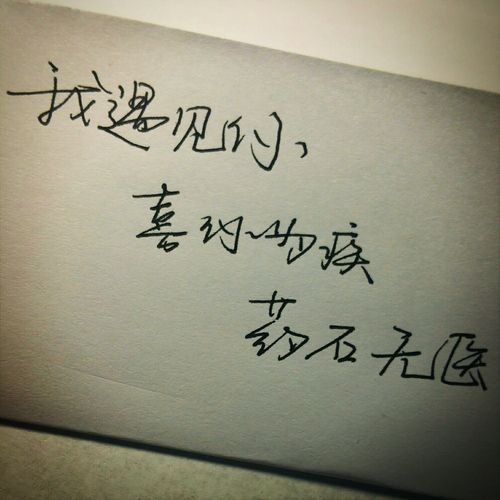 我遇见你、
喜疾
药石无医